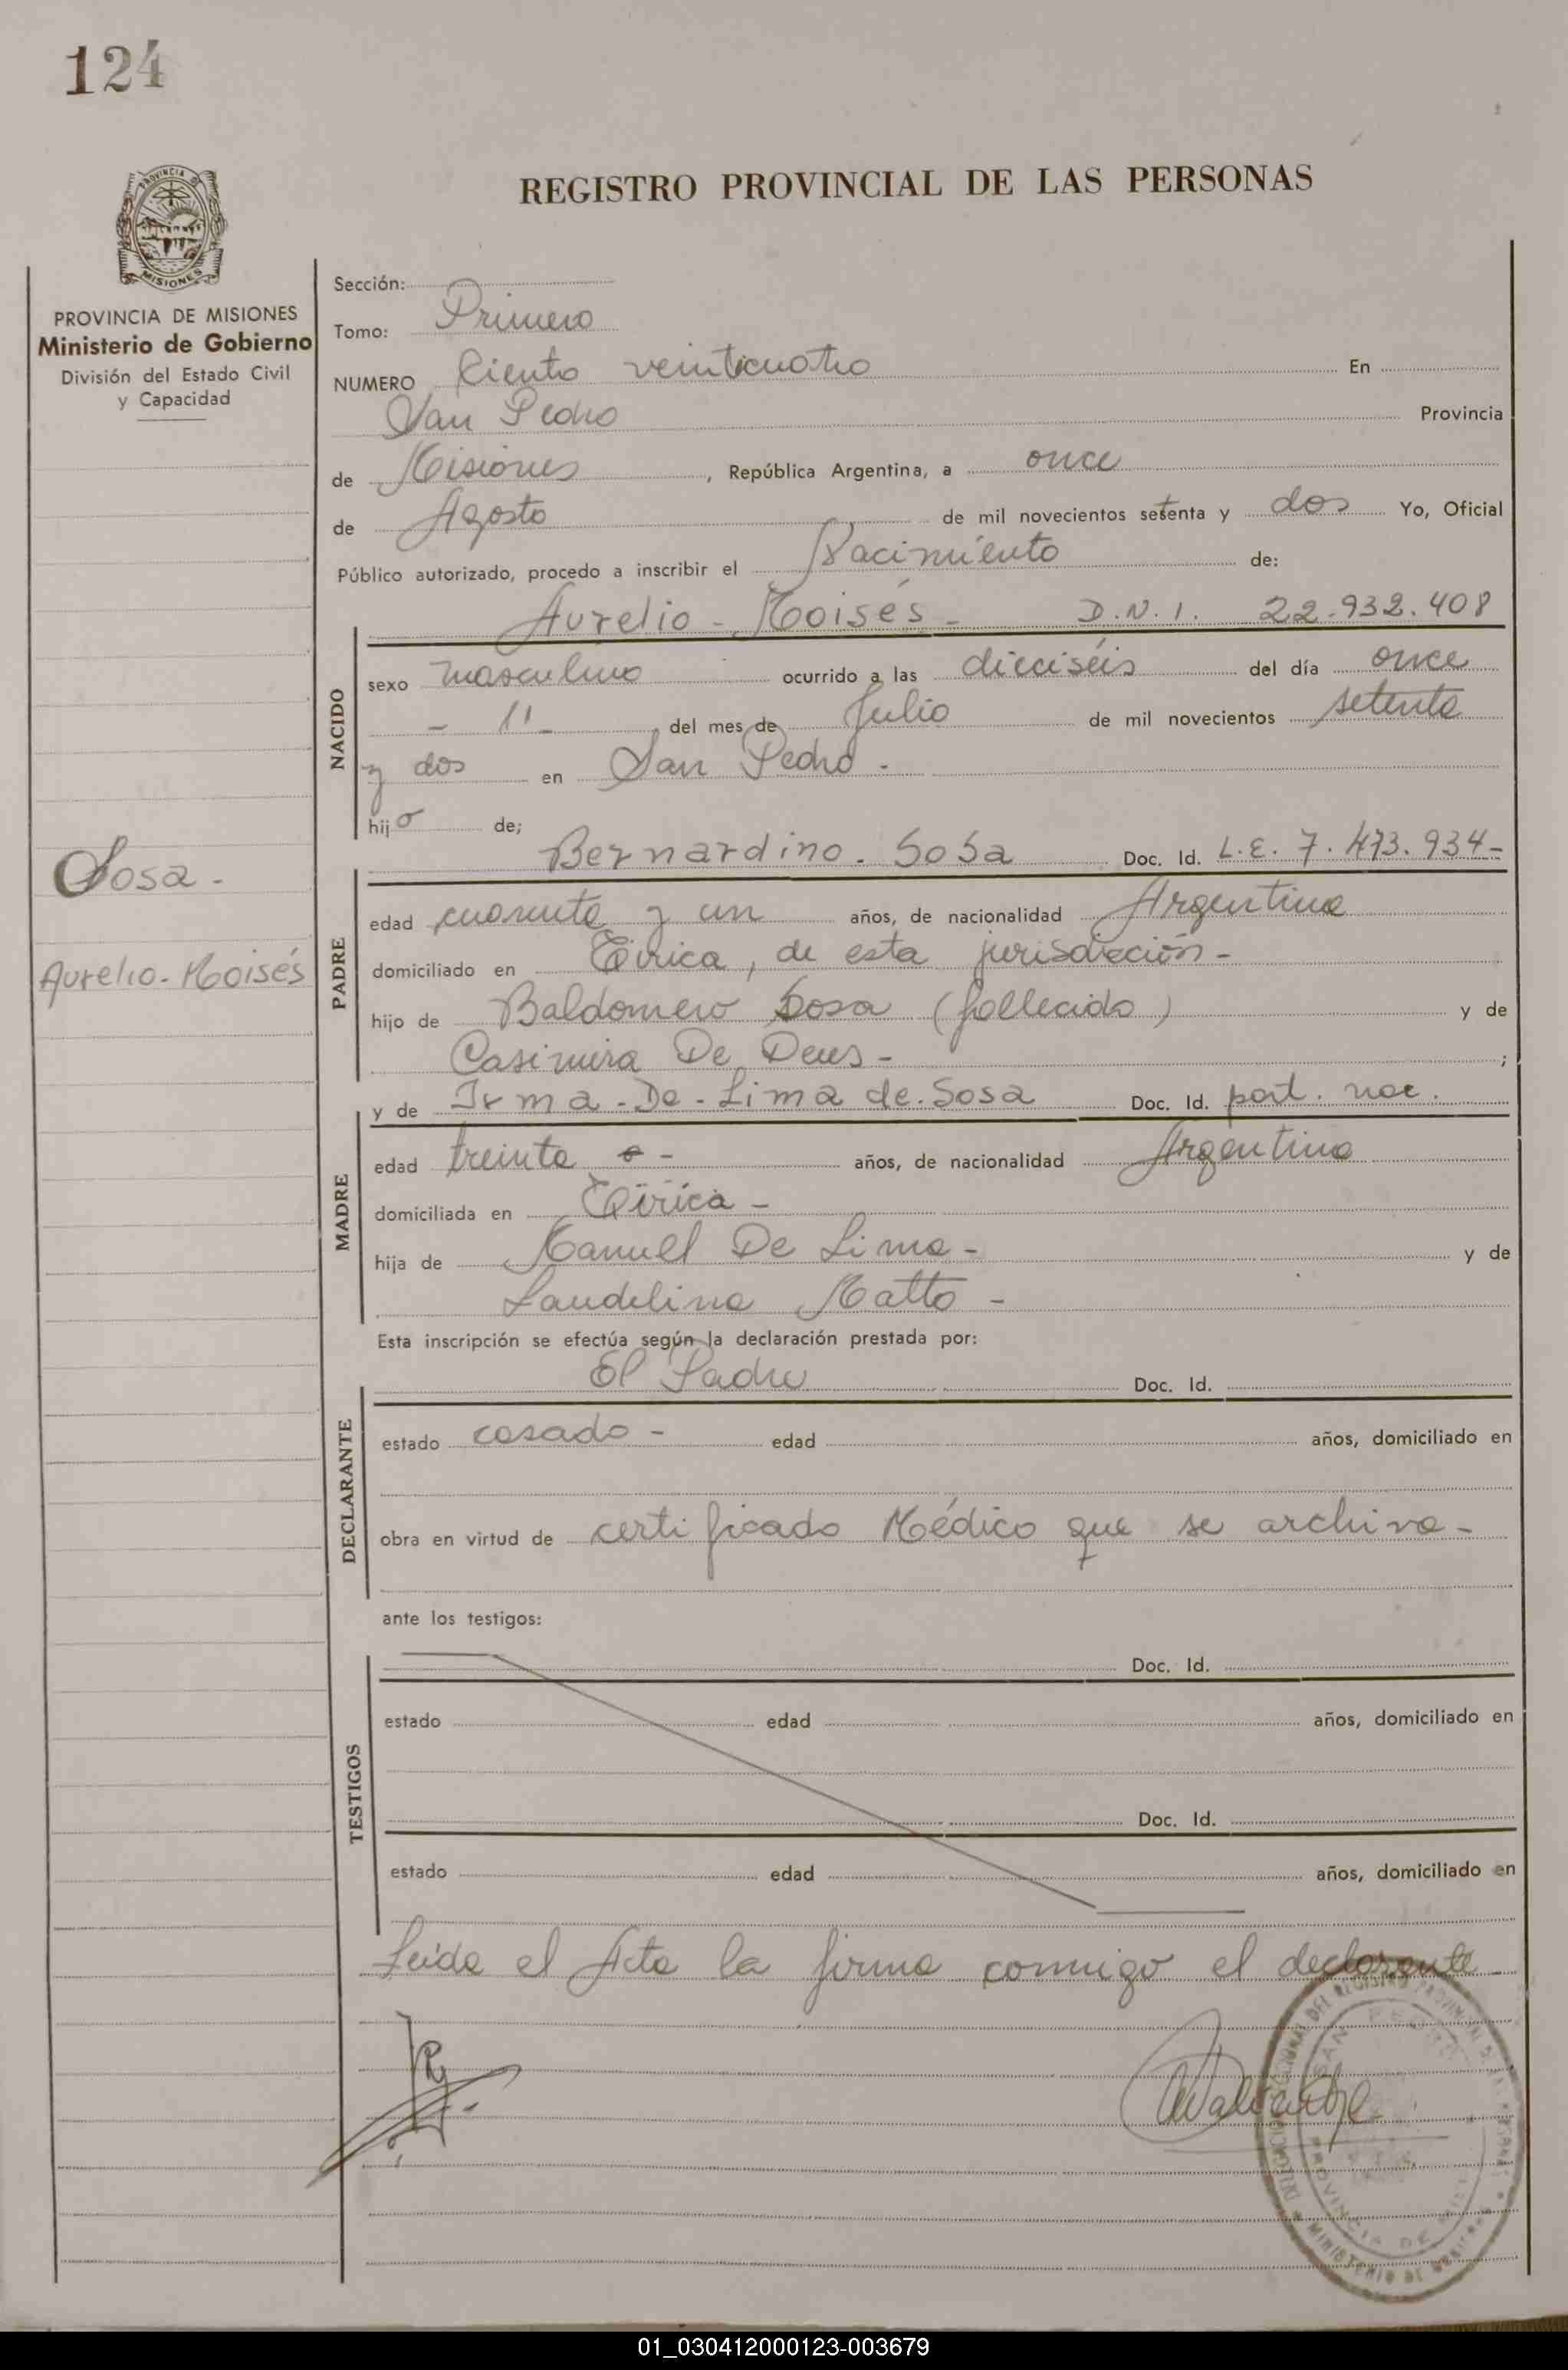 124
REGISTRO PROVINCIAL DE LAS PERSONAS
PROVINCIA DE MISIONES
Ministerio de Gobierno
División del Estado Civil
y Capacidad
Sosa -
Aurelio - Moisés
Sección:
Tomo: Primero
NUMERO Ciento veinticuatro En
San Pedro Provincia
de Misiones, República Argentina, a once
de Agosto de mil novecientos setenta y dos Yo, Oficial
Público autorizado, procedo a inscribir el Nacimiento de:
Aurelio - Moisés - D.N.I. 22.932.408
NACIDO
sexo masculino ocurrido a las dieciséis del día once
- 11 - del mes de Julio de mil novecientos setenta
y dos en San Pedro -
hijo de;
Bernardino - Sosa Doc. Id. L.E. 7.473.934-
PADRE
edad cuarenta y un años, de nacionalidad Argentina
domiciliado en Tirica, de esta jurisdicción -
hijo de Baldomero Sosa (fallecido) y de
Casimira De Deus - ;
y de Irma - De - Lima de Sosa Doc. Id. part. nac.
MADRE
edad treinta - años, de nacionalidad Argentina
domiciliada en Tirica -
hija de Manuel De Lima - y de
Laudelina Matto -
Esta inscripción se efectúa según la declaración prestada por:
El Padre Doc. Id.
DECLARANTE
estado casado - edad años, domiciliado en
obra en virtud de certificado Médico que se archiva -
ante los testigos:
Doc. Id.
TESTIGOS
estado edad años, domiciliado en
Doc. Id.
estado edad años, domiciliado en
Leida el Acta la firma conmigo el declarante -
01_030412000123-003679